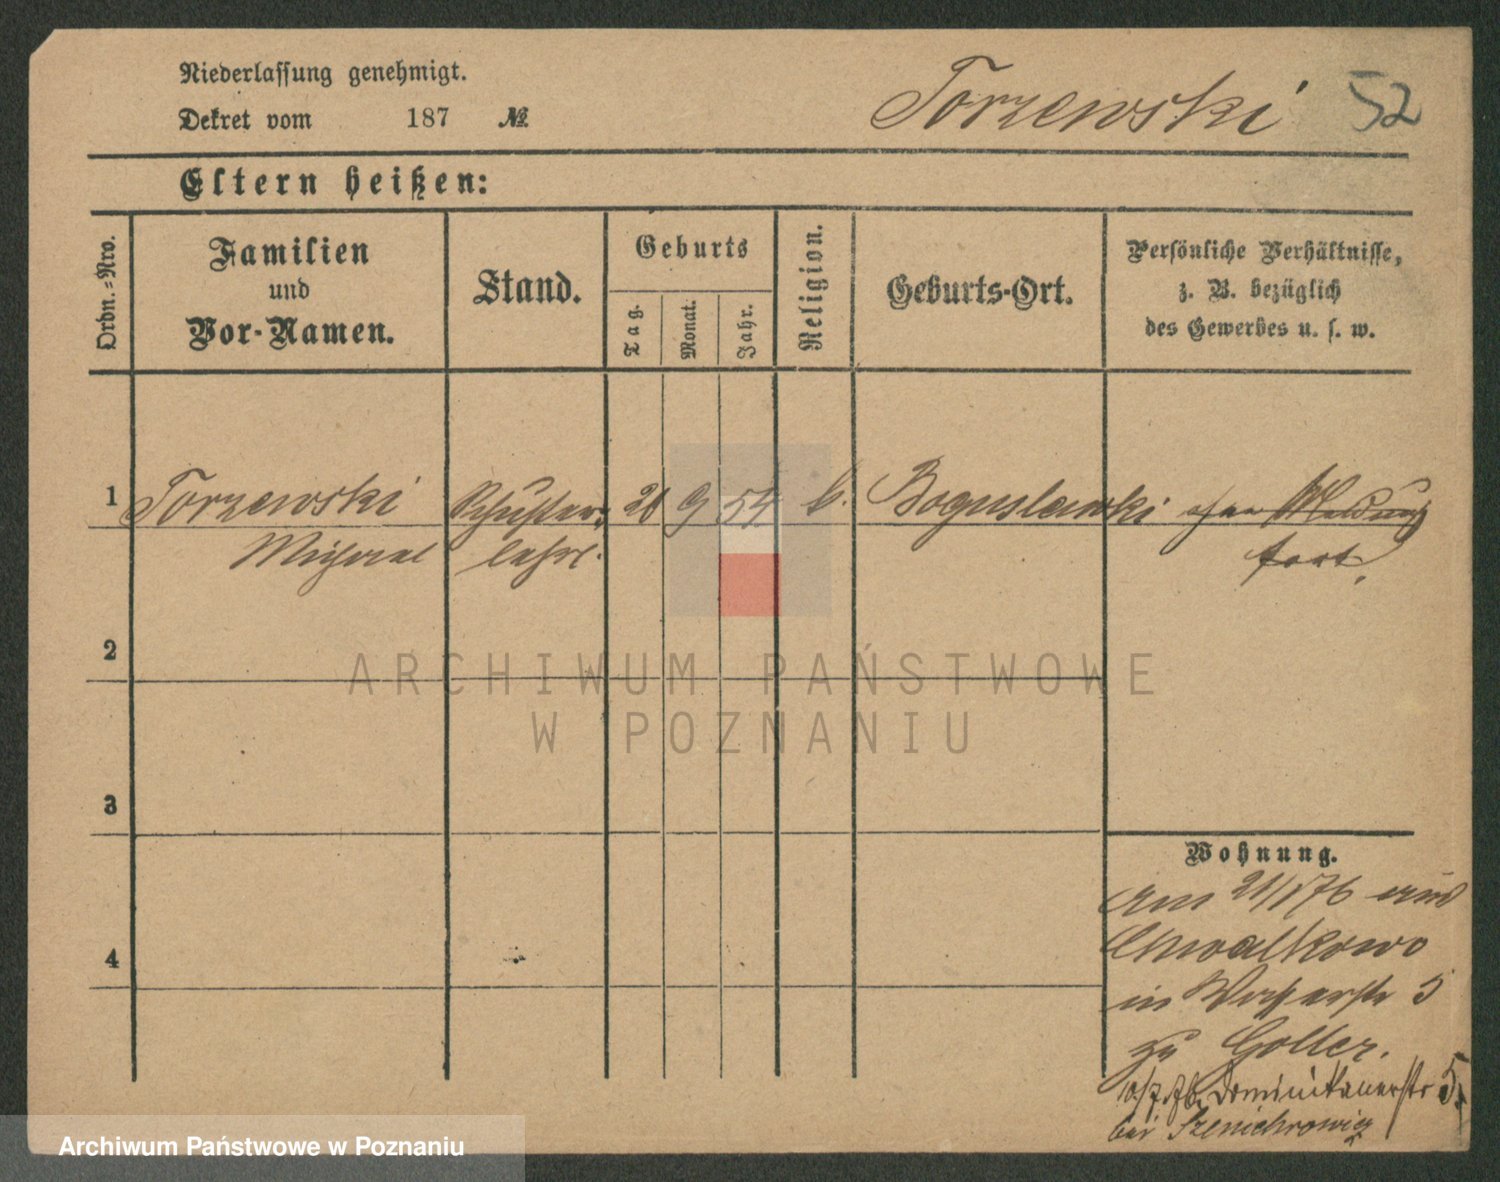 Niederlassung genehmigt.
Dekret vom 187 №
Torzewski 52
Eltern heißen:
Ordn.-Nro.
Familien
und
Vor-Namen.
Stand.
Geburts
Tag.
Monat.
Jahr.
Religion.
Geburts-Ort.
Persönliche Verhältnisse,
z. B. bezüglich
des Gewerbes u. s. w.
1 Torzewski Schuster- 21 9 54 k. Boguslawki ohne Meldung
Michael lehrl. fort.
2
3
4
Wohnung.
Am 21/1 76 aus
Chwalkowo
in Wasserstr 5
zu Goller.
10/7 76. Dominikanerstr 5.
bei
ARCHIWUM PAŃSTWOWE
W POZNANIU
Archiwum Państwowe w Poznaniu